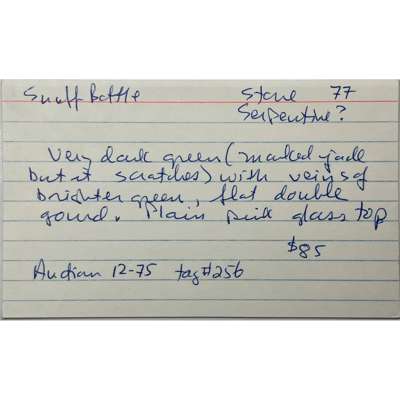 Snuff Bottle Stone 77
Serpentine?
Very dark green (marked jade
but it scratches) with veins of
brighter green, flat double
gourd. Plain pink glass top
$85
Auction 12-75 tag #256